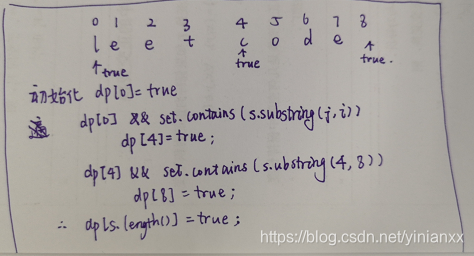 0 1 2 3 4 5 6 7 8
l e e t c o d e
↑true ↑true ↑true.
初始化 dp[0]=true
dp[0] && set.contains(s.substring(j,i))
dp[4]=true;
dp[4] && set.contains(s.substring(4,8))
dp[8]=true;
∴ dp[s.length()]=true;
https://blog.csdn.net/yinianxx